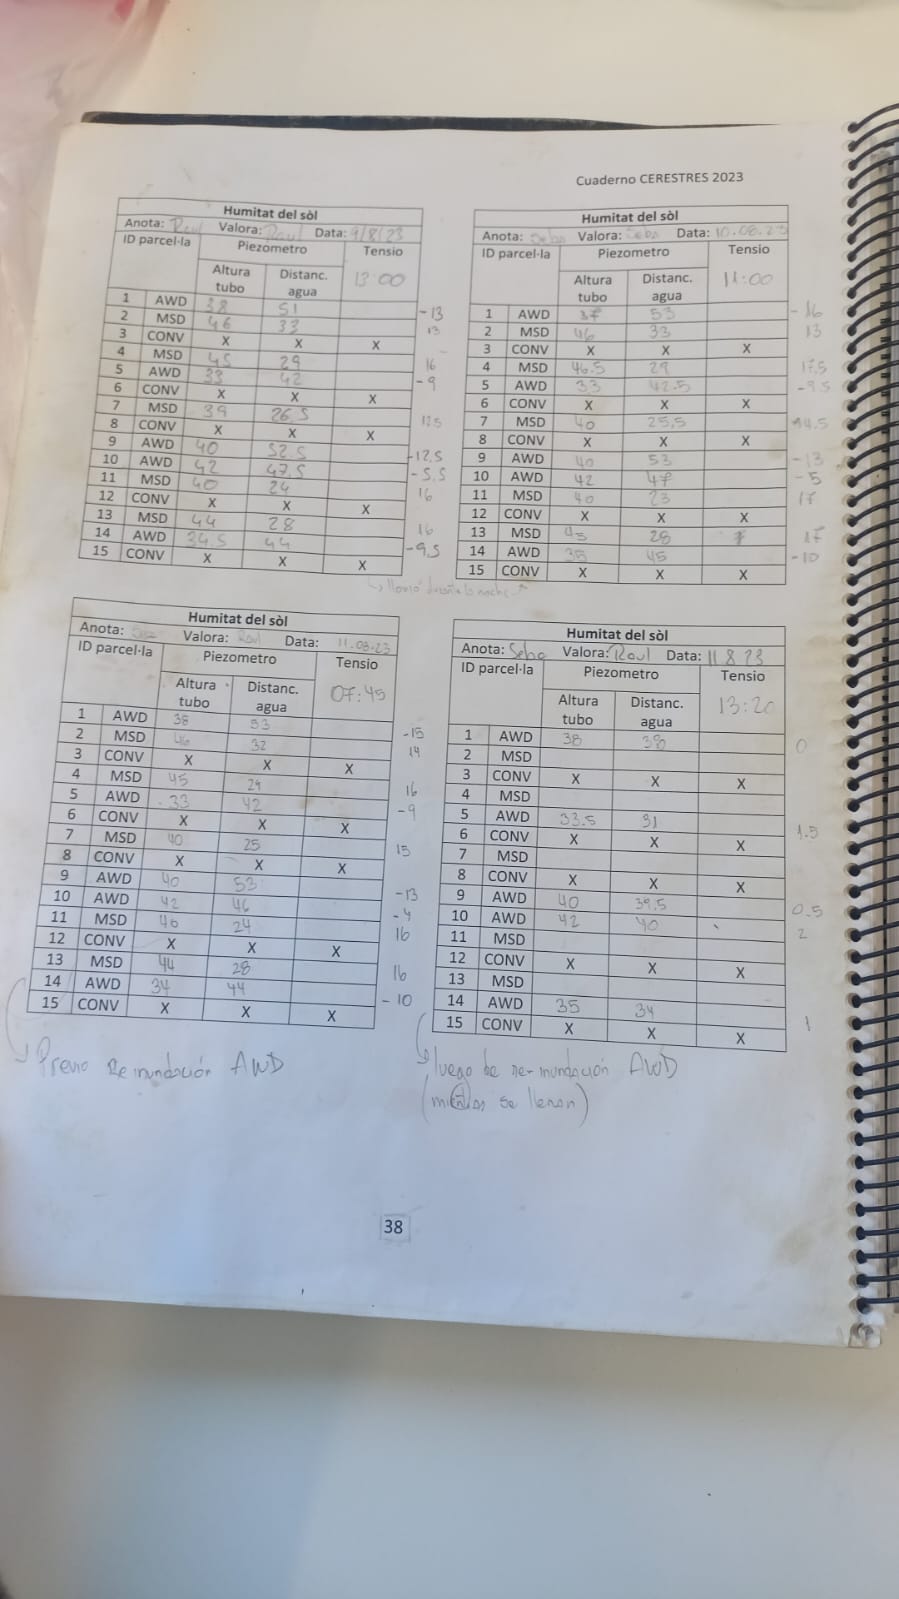 Cuaderno CERESTRES 2023
Humitat del sòl
Anota: Raul Valora: Raul Data: 9/8/23
ID parcel·la Piezometro Tensio
Altura tubo Distanc. agua 13:00
1 AWD 38 51 -13
2 MSD 46 33 13
3 CONV X X X
4 MSD 45 29 16
5 AWD 33 42 -9
6 CONV X X X
7 MSD 39 26.5 12.5
8 CONV X X X
9 AWD 40 52.5 -12.5
10 AWD 42 47.5 -5.5
11 MSD 40 24 16
12 CONV X X X
13 MSD 44 28 16
14 AWD 34.5 44 -9.5
15 CONV X X X
Humitat del sòl
Anota: Seba Valora: Seba Data: 10.08.23
ID parcel·la Piezometro Tensio
Altura tubo Distanc. agua 11:00
1 AWD 37 53 -16
2 MSD 46 33 13
3 CONV X X X
4 MSD 46.5 29 17.5
5 AWD 33 42.5 -9.5
6 CONV X X X
7 MSD 40 25,5 14.5
8 CONV X X X
9 AWD 40 53 -13
10 AWD 42 47 -5
11 MSD 40 23 17
12 CONV X X X
13 MSD 45 28 17
14 AWD 35 45 -10
15 CONV X X X
llovió durante la noche
Humitat del sòl
Anota: Valora: Raul Data: 11.08.23
ID parcel·la Piezometro Tensio
Altura tubo Distanc. agua 07:45
1 AWD 38 53 -15
2 MSD 46 32 14
3 CONV X X X
4 MSD 45 29 16
5 AWD 33 42 -9
6 CONV X X X
7 MSD 40 25 15
8 CONV X X X
9 AWD 40 53 -13
10 AWD 42 46 -4
11 MSD 40 24 16
12 CONV X X X
13 MSD 44 28 16
14 AWD 34 44 -10
15 CONV X X X
Previo Re inundación AWD
Humitat del sòl
Anota: Seba Valora: Raul Data: 11 8 23
ID parcel·la Piezometro Tensio
Altura tubo Distanc. agua 13:20
1 AWD 38 38 0
2 MSD
3 CONV X X X
4 MSD
5 AWD 33.5 31 1.5
6 CONV X X X
7 MSD
8 CONV X X X
9 AWD 40 39.5 0.5
10 AWD 42 40 2
11 MSD
12 CONV X X X
13 MSD
14 AWD 35 34 1
15 CONV X X X
luego de re-inundación AWD
(mientras se llenan)
38